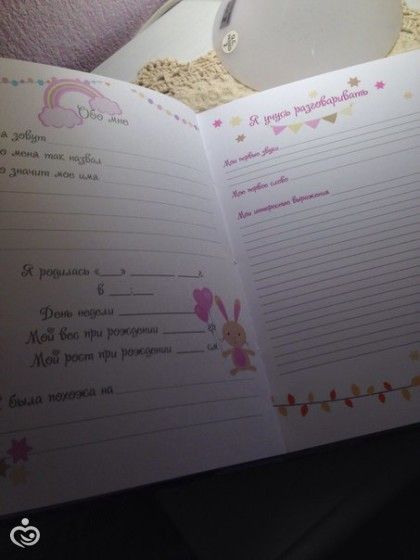 Обо мне
я зовут
о меня так назвал
о значит мое имя
Я родилась «___» ______ ___г.
в ___:___
День недели ______
Мой вес при рождении ______ гр
Мой рост при рождении ______ см
была похожа на
Я учусь разговаривать
Мои первые звуки
Мое первое слово
Мои интересные выражения